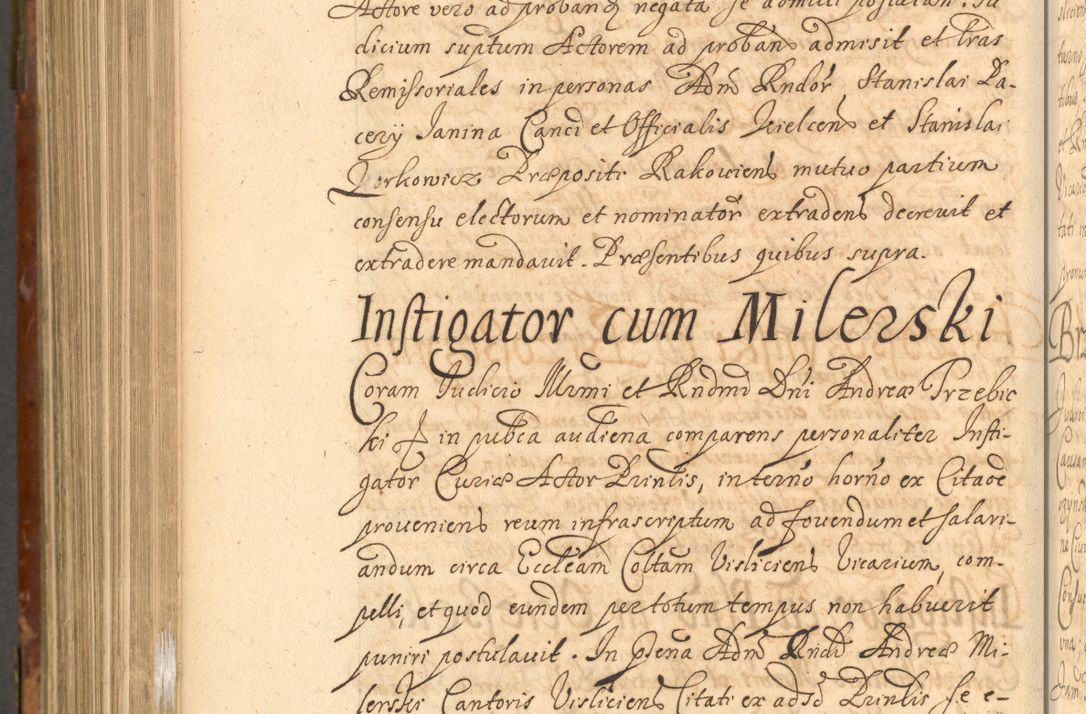 Actore vero ad proband negata se admitti postulan. Ju
dicium suptum Actorem ad proban admisit et Lras
Remissoriales in personas Adm Rndor Stanislai Pa-
cery Janina Canci et Officialis Kielcens et Stanislai
Lorkowicz Præpositi Rakoviens mutuo partium
consensu electorum et nominator extradens decrevit et
extradere mandavit. Præsentibus quibus supra.
Instigator cum Milerski
Coram Judicio Illrmi et Rndmd Dni Andreæ Trzebic
ki in pubca audiena comparens personaliter Insti-
gator Curiæ Actor Prinlis, in termo horno ex Citaoe
proveniens reum infrascriptum ad fovendum et salari-
andum circa Eccleam Coltam Visliciens Vicarium, com-
pelli, et quod eundem per totum tempus non habuerit
puniri postulavit. In pœna Adm Rndi Andreæ Mi-
lerski Cantoris Visliciens Citati ex adso Prinlis se e-